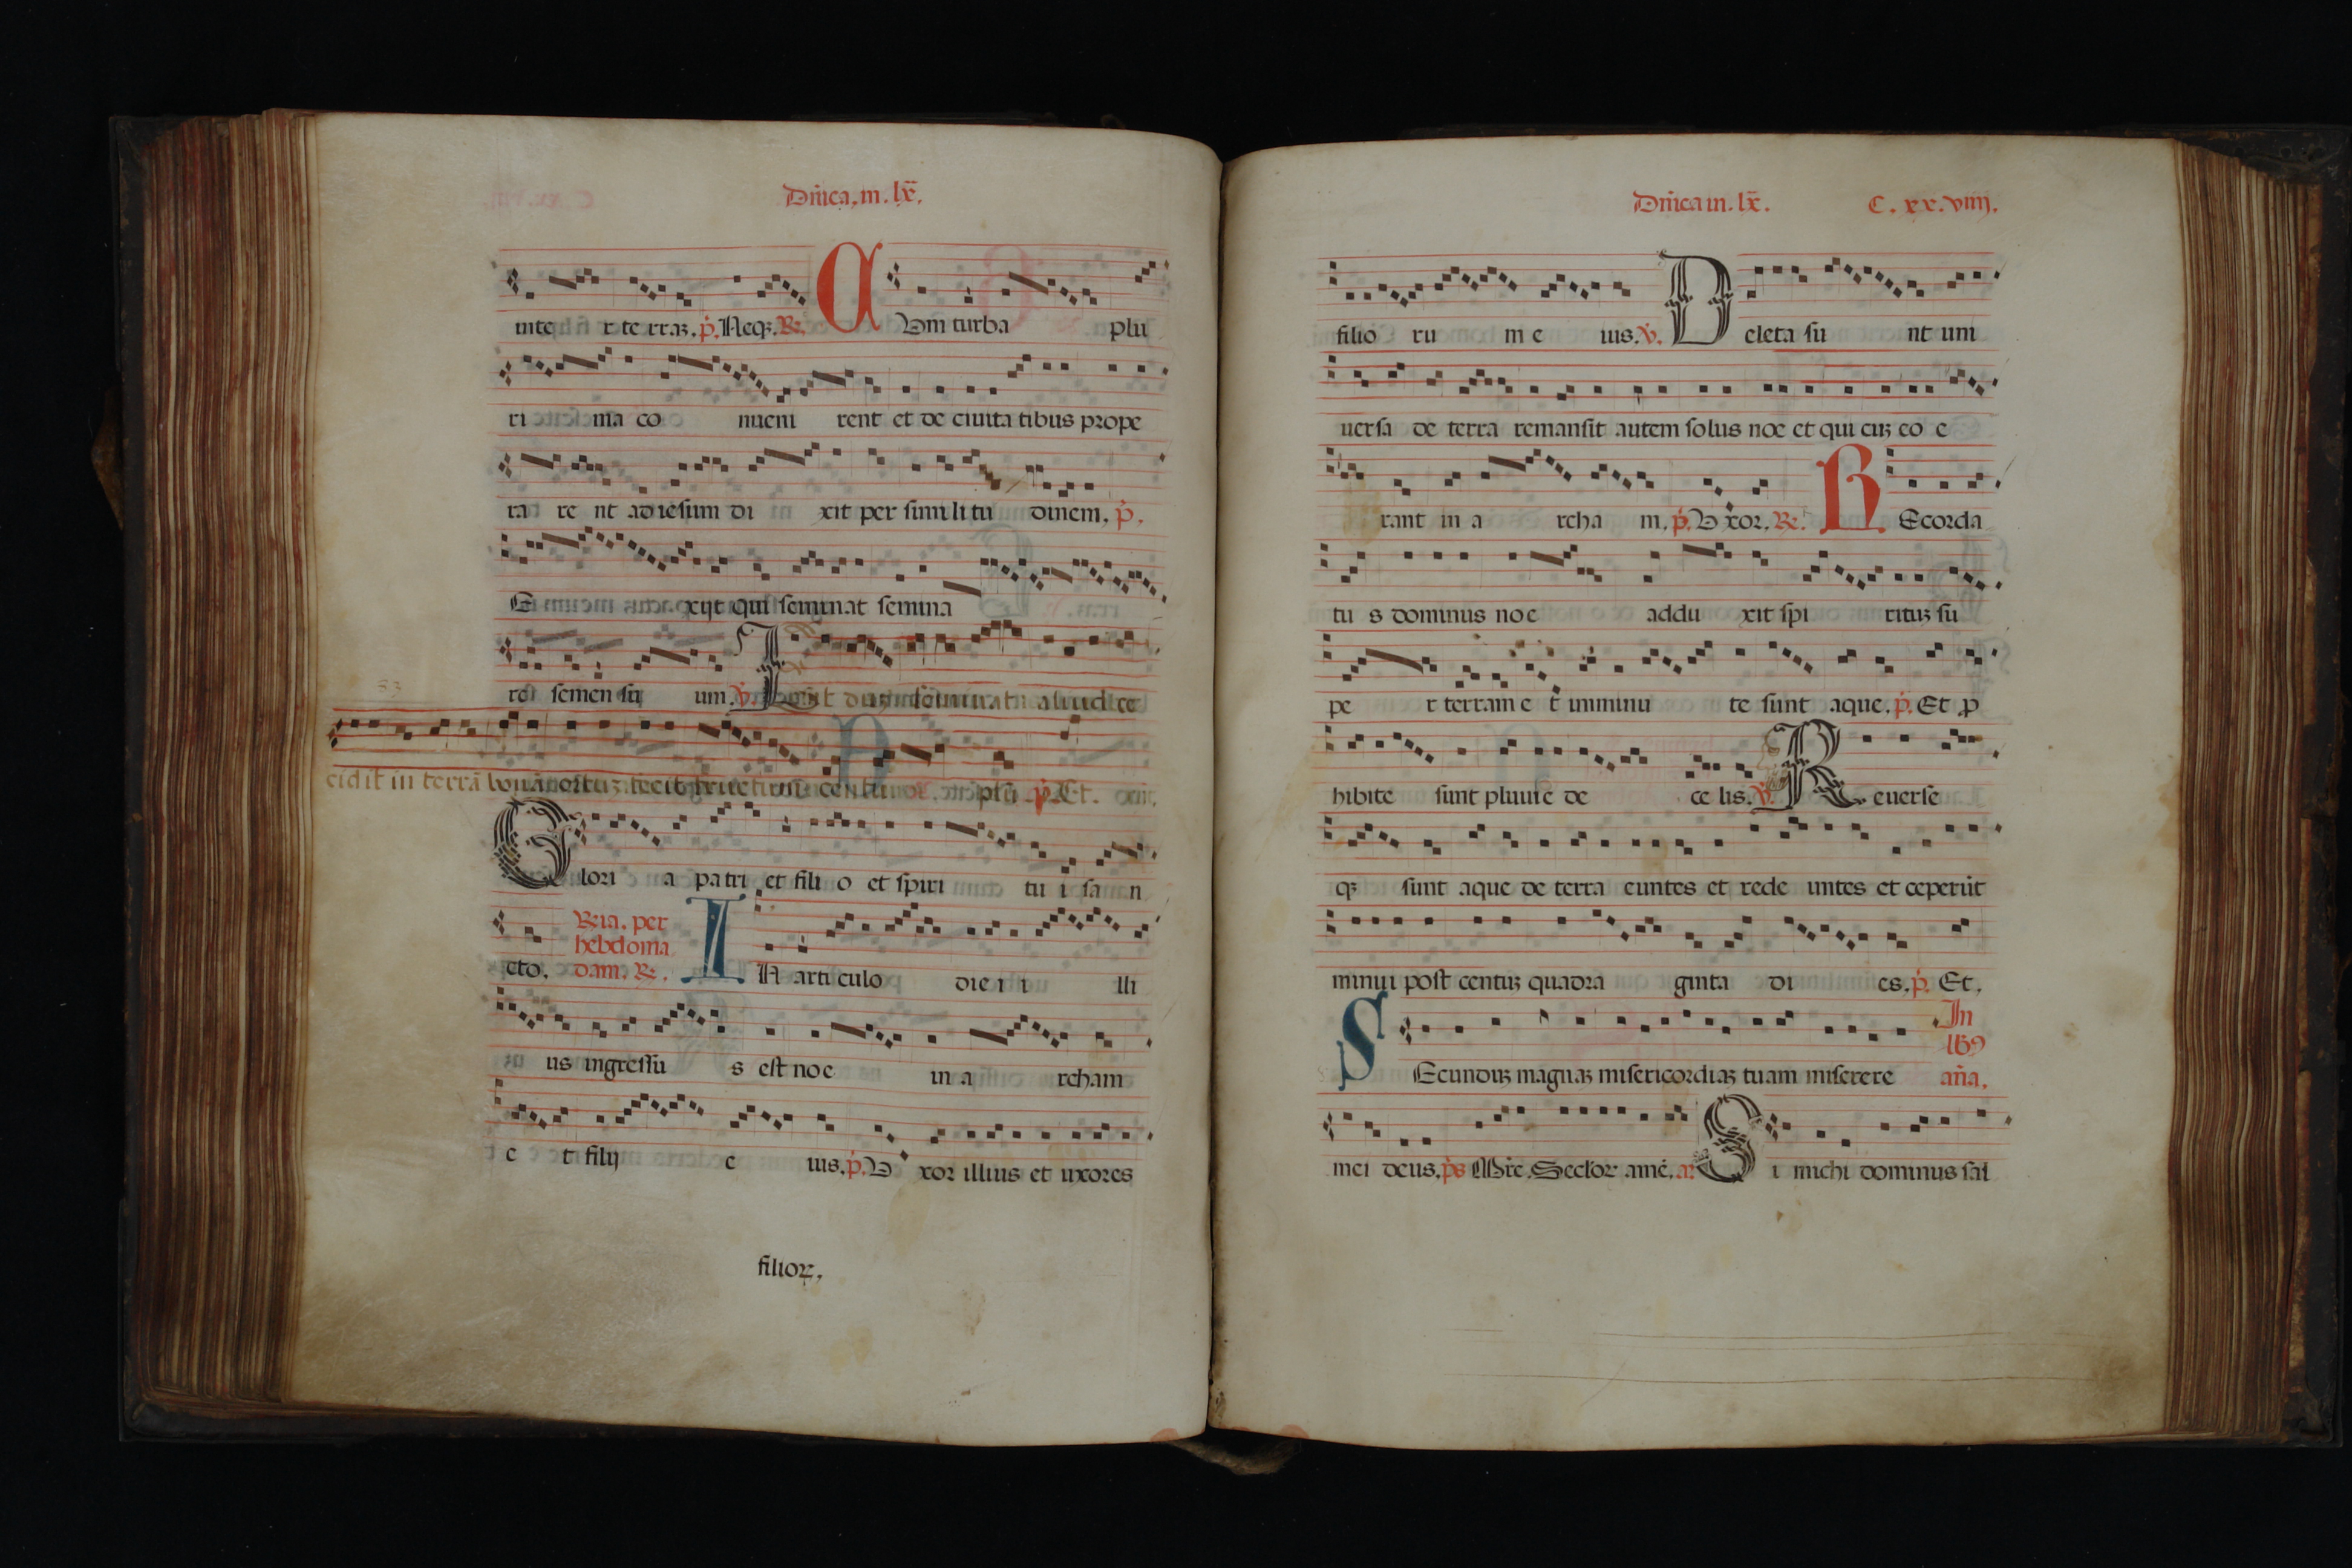 Dn̄ica. in. lx̄.
inte r te rraȝ. p̄. Neqȝ. R̄.  C Vm turba plu
ri ma co nueni rent et de ciuita tibus prope
ra re nt ad iesum di xit per simili tu dinem. p̄.
E xijt qui seminat semina
re semen su um. v̄.
cidit in terrā bonā
plū p̄. Et.
G lori a patri et fili o et spiri tu i sa n
cto. R̄ia. per
hebdoma
dam. R̄.
I N arti culo die i i lli
us ingressu s est noe in a rcham
e t filij e ius. p̄. V xor illius et uxores
filioꝝ.
Dn̄ica in. lx̄. C. xx. viiij.
filio ru m e ius. v̄. D eleta su nt uni
uersa de terra remansit autem solus noe et qui cuȝ eo e
rant in a rcha m. p̄. V xor. R̄. R Ecorda
tu s dominus noe addu xit spi rituȝ su
pe r terram e t imminu te sunt aque. p̄. Et ꝓ
hibite sunt pluuie de ce lis. v̄. R euerse
qȝ sunt aque de terra euntes et rede untes et ceperūt
minui post centuȝ quadra ginta di es. p̄. Et.
S Ecunduȝ magnaȝ misericordiaȝ tuam miserere
In
lb9
an̄a.
mei deus. p̄s S i michi dominus sal